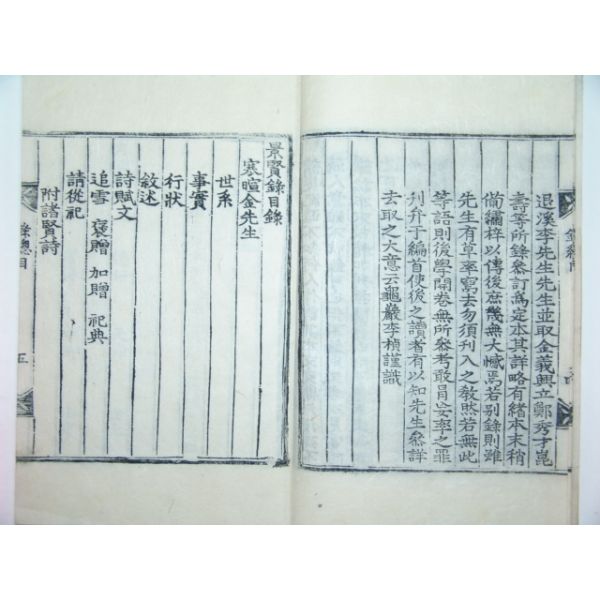 退溪李先生先生並取金義興立鄭秀才崑
壽等所錄參訂爲定本其詳略有緒本末稍
備繡梓以傳後庶幾無大憾焉若別錄則雖
先生有草率寫去勿須刊入之敎然若無此
等語則後學開卷無所參考敢冒妄率之罪
刊弁于編首使後之讀者有以知先生參詳
去取之大意云龜巖李楨謹識
景賢錄目錄
寒暄金先生
世系
事實
行狀
敘述
詩賦文
追雪 褒贈 加贈 祀典
請從祀
附諸賢詩
錄總目
五